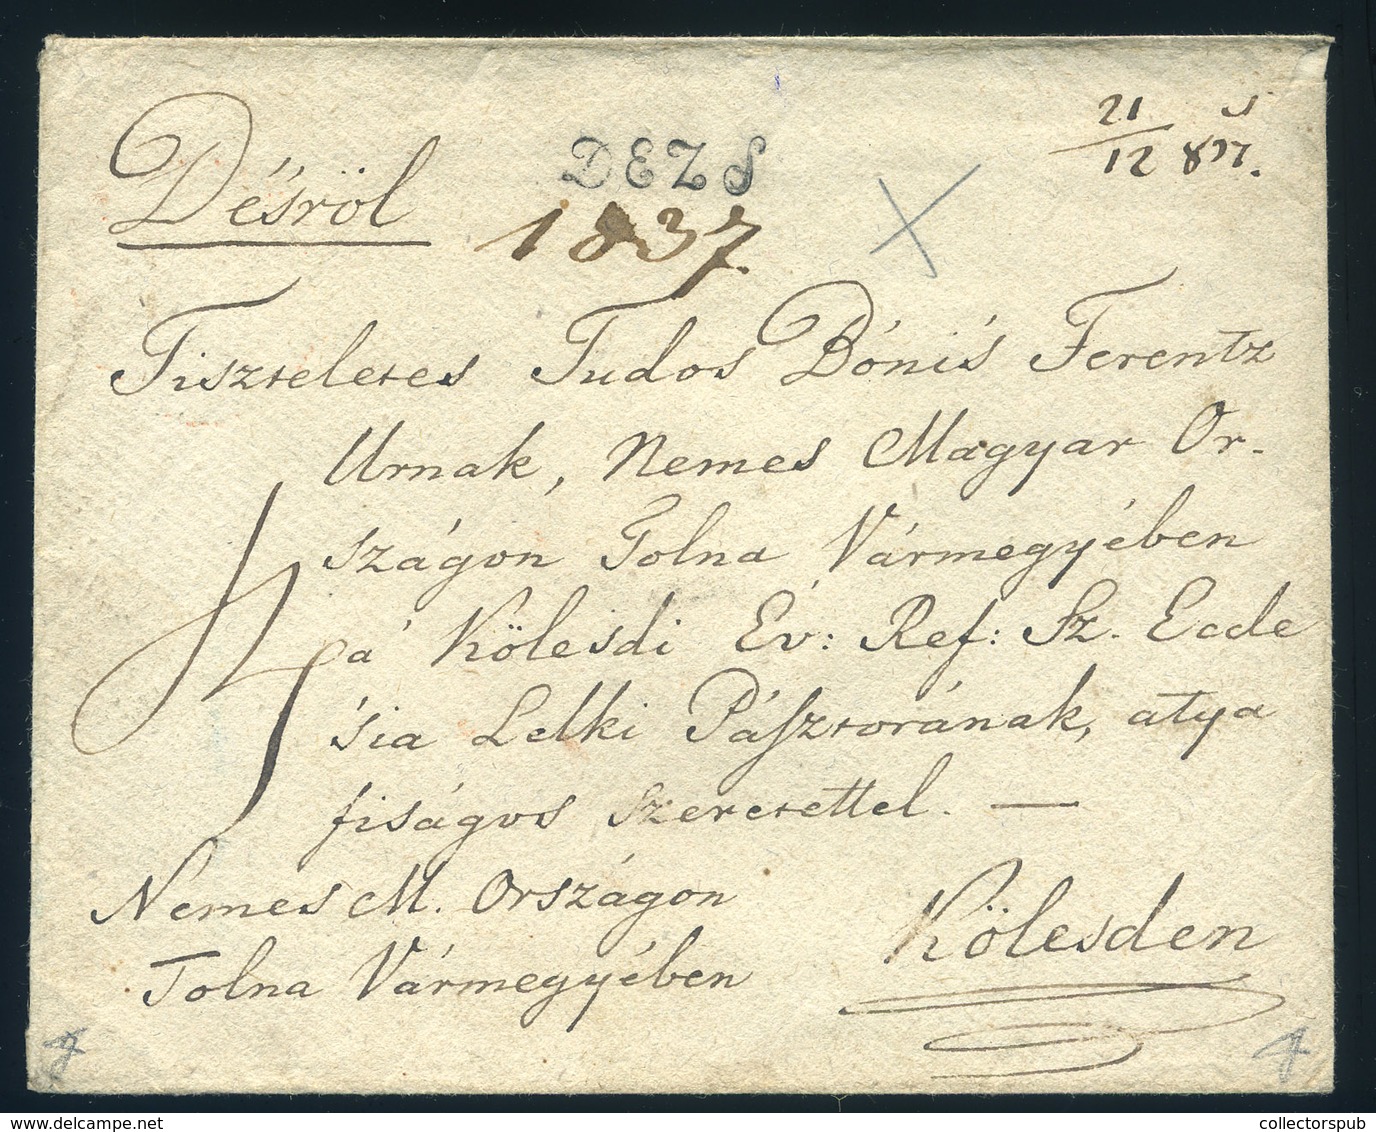 21
12 837.
DEZS
Désröl
1837.
Tiszteletes Tudos Bónis Ferentz
Urnak, Nemes Magyar Or-
szágon Tolna Vármegyében
á Kölesdi Ev: Ref: Sz. Eccle
'sia Lelki Pásztorának, atya
fiságos szeretettel. —
Nemes M. Országon
Tolna Vármegyében
Kölesden
www.delcampe.net
collectorspub